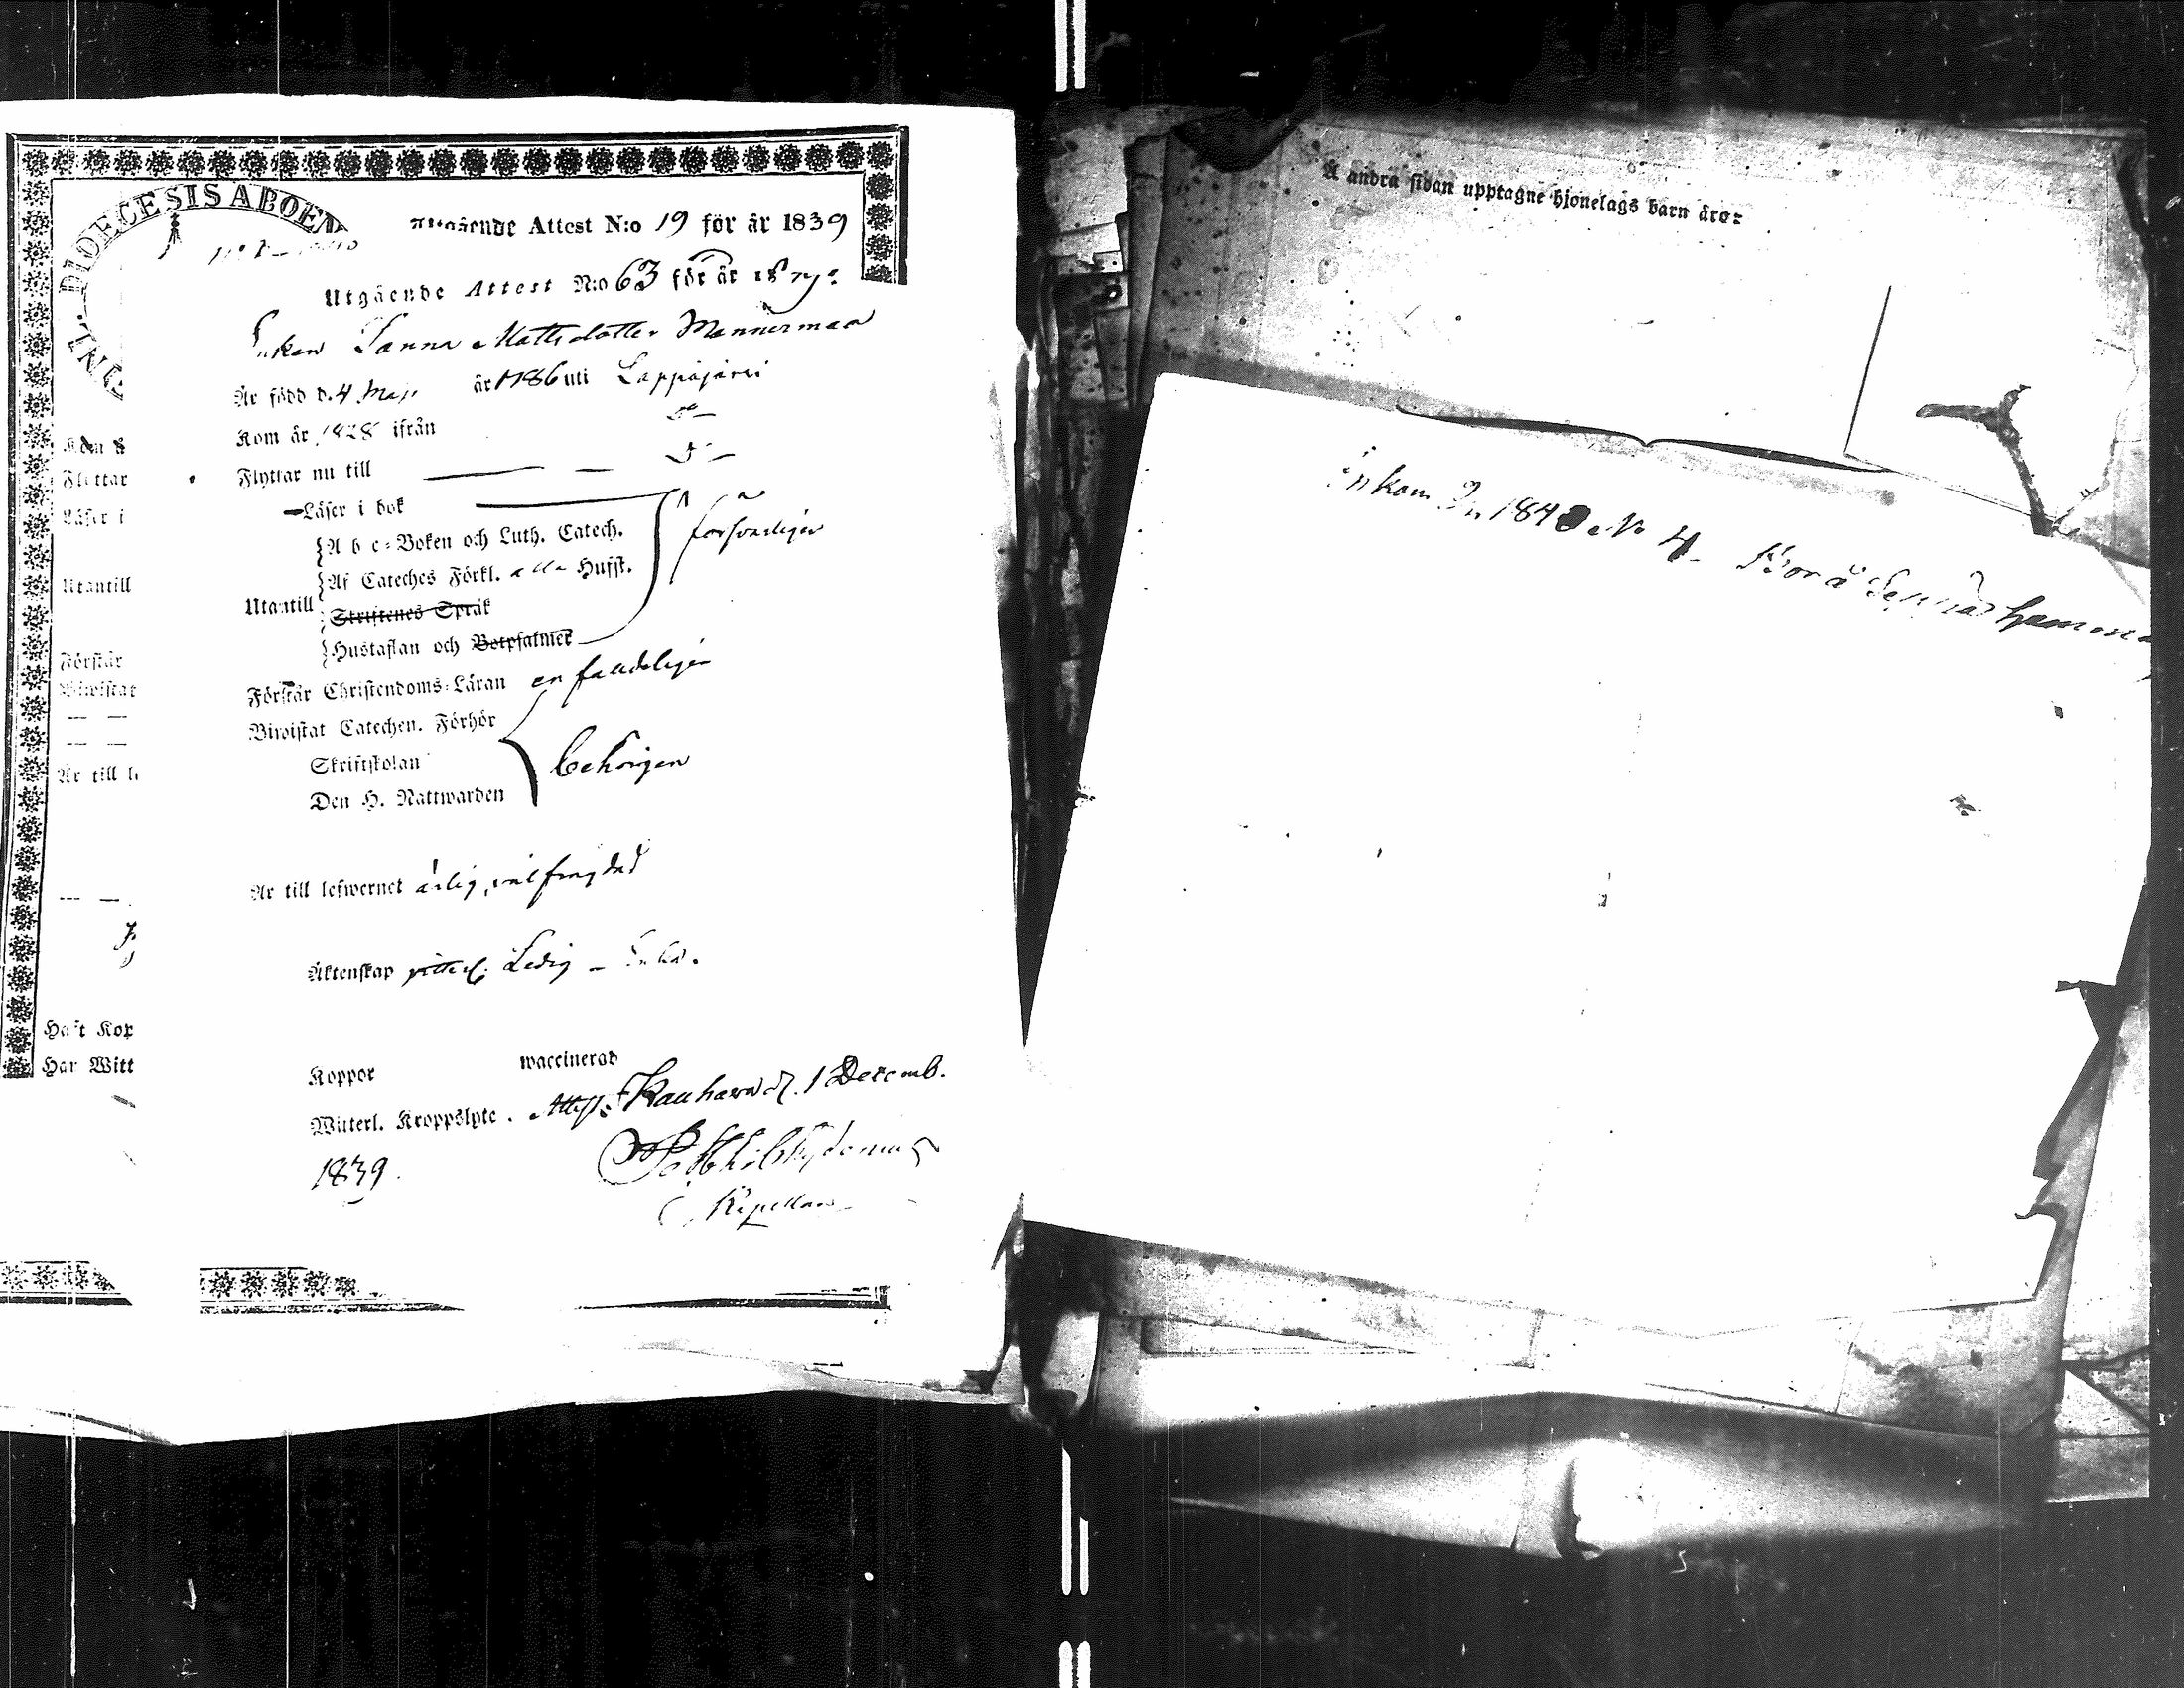 DIOECESIS ABOEN
Utgående Attest N:o 19 för år 1839
Utgående Attest N:o 63 för år 18
Enkan Sanna Mattsdotter Mannermaa
Är född d. 4 Maji år 1786 uti Lappajärvi
Kom år 1828 ifrån
Flyttar nu till
Läser i bok
A b c-Boken och Luth. Catech. försvarligen
Af Cateches Förkl. alla Hufst.
Utantill
Skriftenes Språk
Hustaflan och Botpsalmer
Förstår Christendoms-Läran
Biwistat Catechen. Förhör
Skriftskolan behörigen
Den H. Nattwarden
Är till lefwernet ärlig, välfrejdad
Äktenskap Ledig - Enka.
Koppor waccinerad
Witterl. Kroppslyte. Attest. Kauhava d. 1 Decemb.
1839.
Kapellan
Kom å
Flyttar
Läser i
Utantill
Förstår
Biwistat
Är till l
Haft Kop
Har Witt
Å andra sidan upptagne hjonelags barn äro:
Inkom 1840 No 4